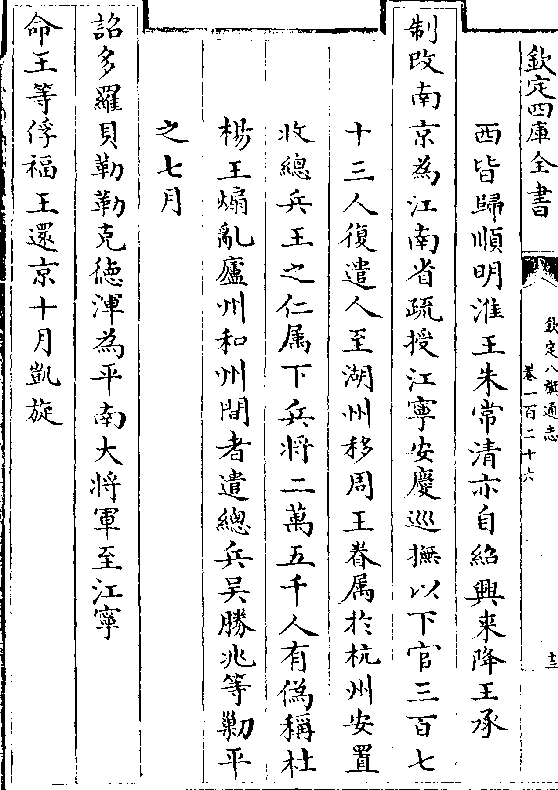 欽定四庫全書
欽定八旗通志
卷一百二十六
十三
西皆歸順明淮王朱常清亦自紹興来降王承
制改南京為江南省疏授江寧安慶巡撫以下官三百七
十三人復遣人至湖州移周王眷属於杭州安置
收總兵王之仁属下兵將二萬五千人有偽稱杜
楊王煽亂廬州和州間者遣總兵吴勝兆等勦平
之七月
詔多羅貝勒勒克德渾為平南大将軍至江寧
命王等俘福王還京十月凱旋